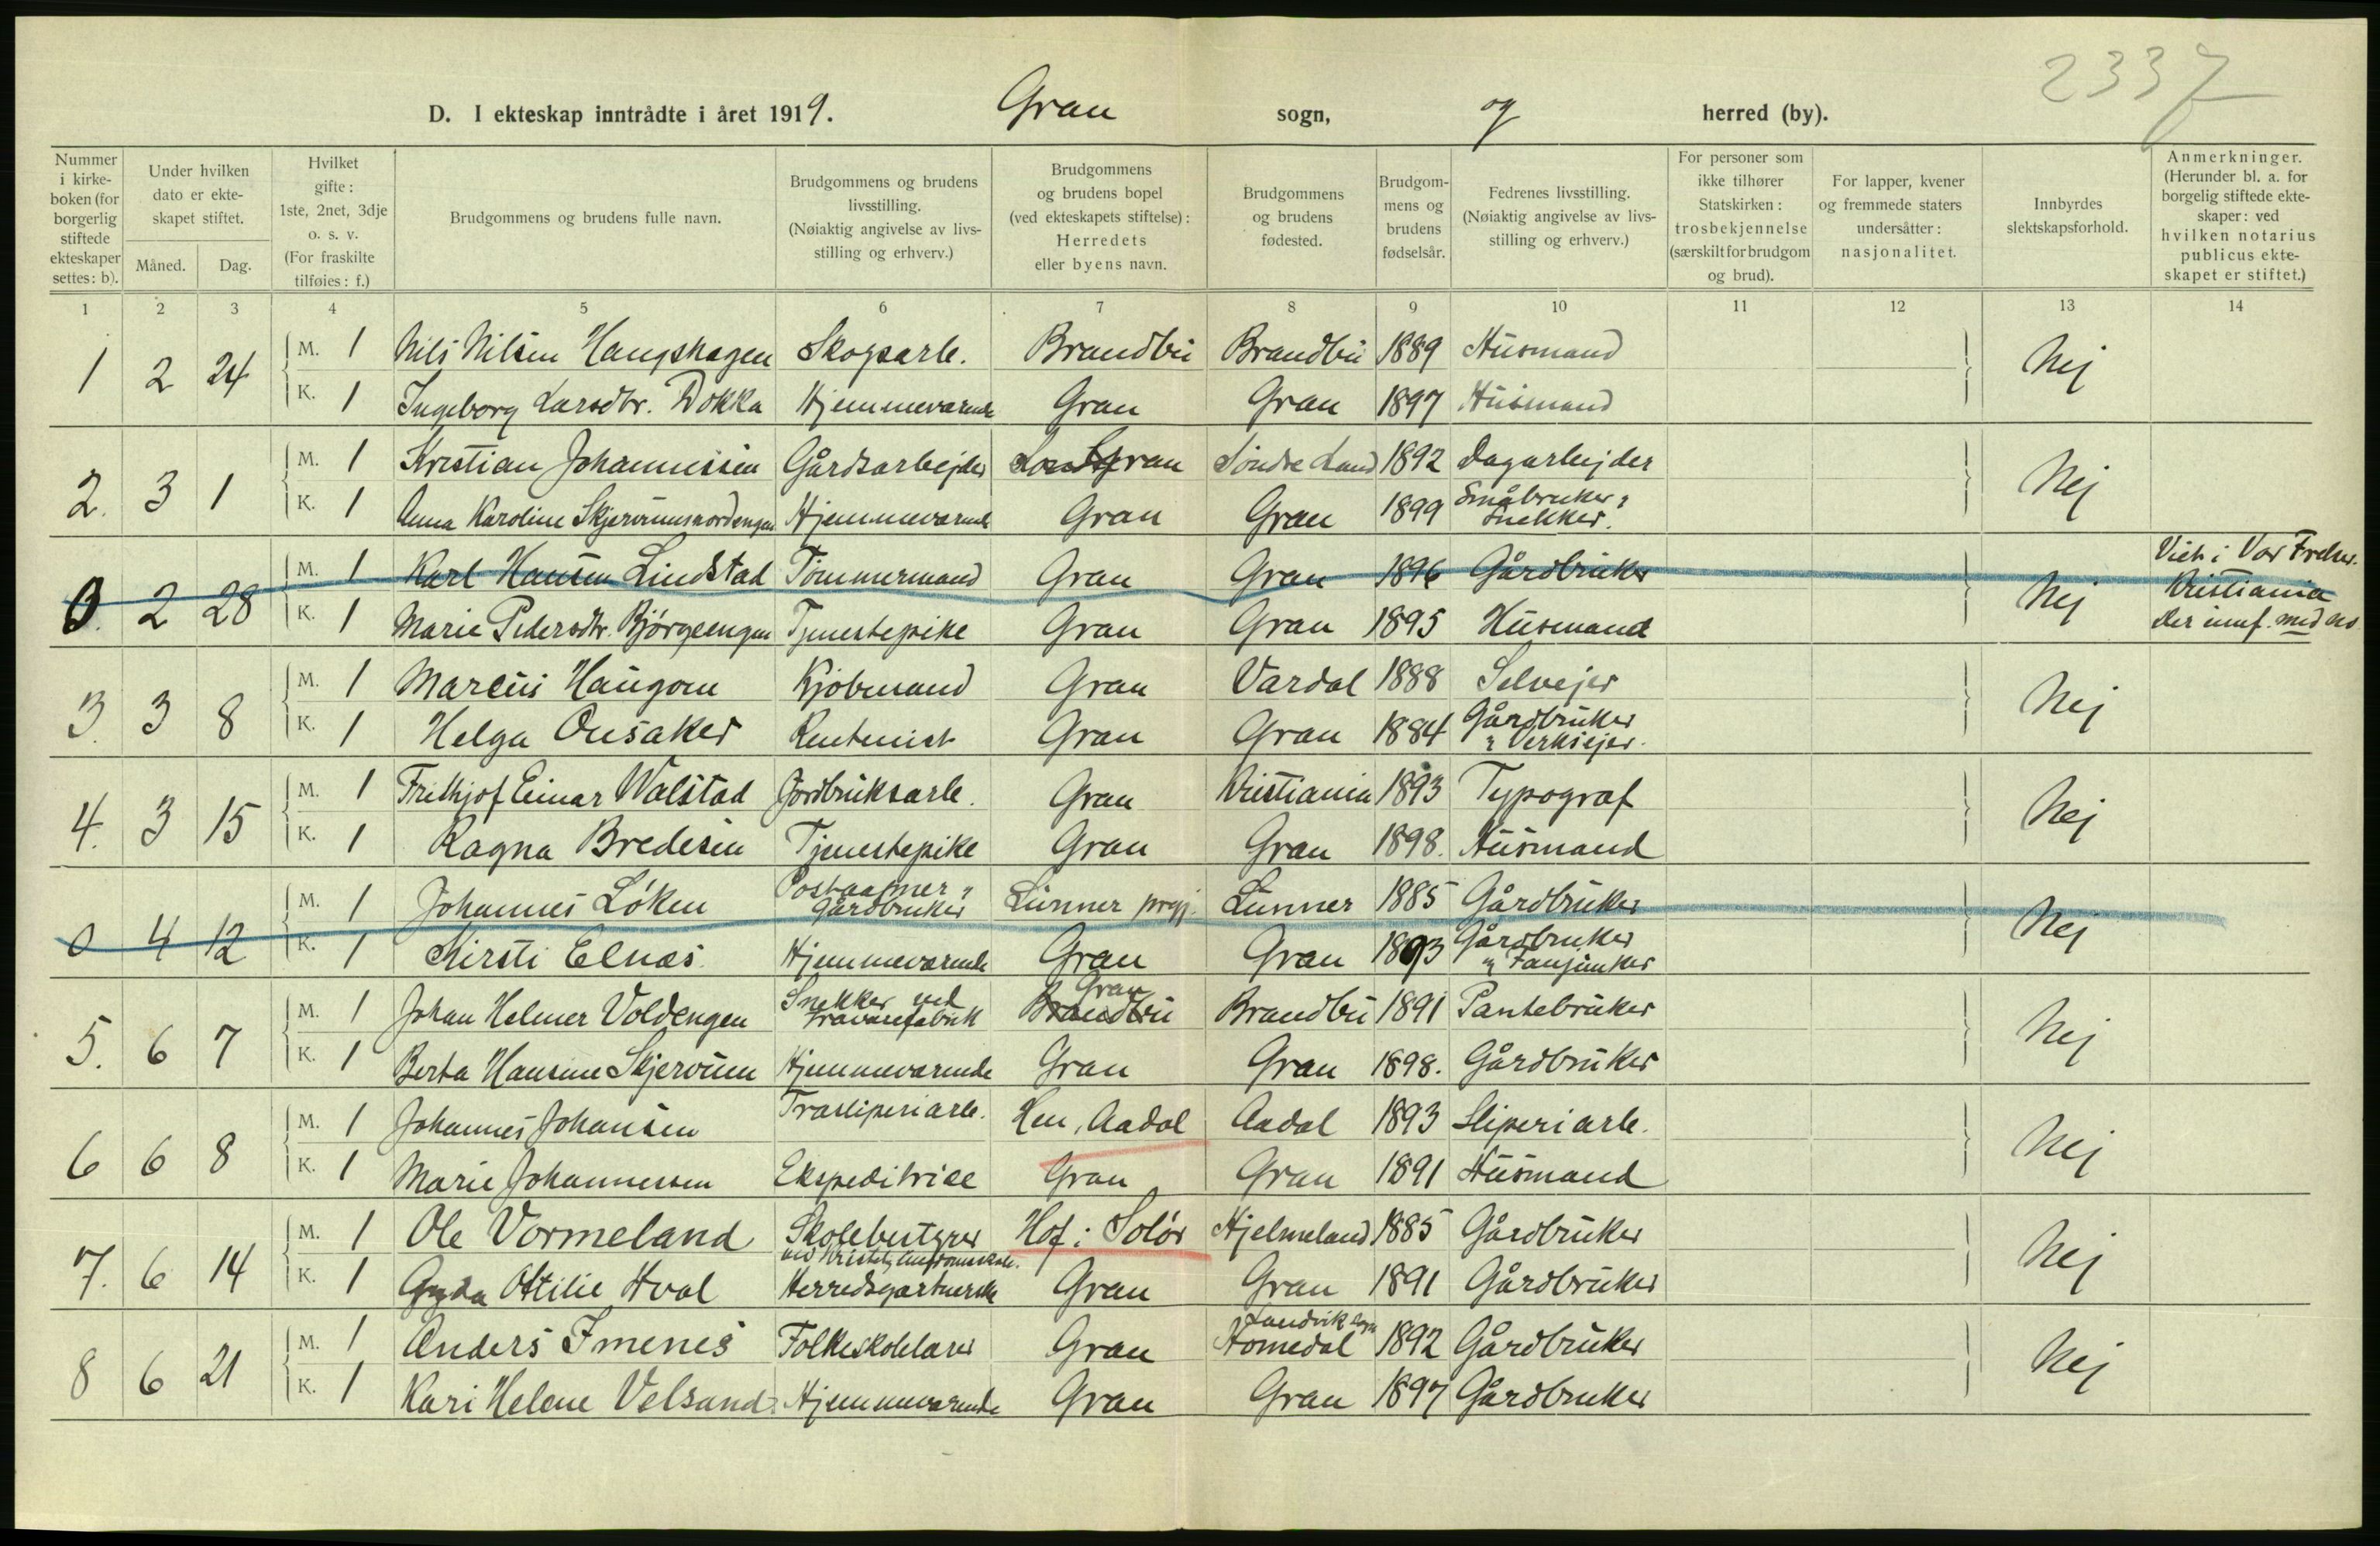 2337
D. I ekteskap inntrådte i året 1919. Gran sogn, og herred (by).
Nummer i kirkeboken (for borgerlig stiftede ekteskaper settes: b).
Under hvilken dato er ekteskapet stiftet.
Måned. Dag.
Hvilket gifte: 1ste, 2net, 3dje o. s. v. (For fraskilte tilføies: f.)
Brudgommens og brudens fulle navn.
Brudgommens og brudens livsstilling. (Nøiaktig angivelse av livsstilling og erhverv.)
Brudgommens og brudens bopel (ved ekteskapets stiftelse): Herredets eller byens navn.
Brudgommens og brudens fødested.
Brudgommens og brudens fødselsår.
Fedrenes livsstilling. (Nøiaktig angivelse av livsstilling og erhverv.)
For personer som ikke tilhører Statskirken: trosbekjennelse (særskilt for brudgom og brud).
For lapper, kvener og fremmede staters undersåtter: nasjonalitet.
Innbyrdes slektskapsforhold.
Anmerkninger. (Herunder bl. a. for borgelig stiftede ekteskaper: ved hvilken notarius publicus ekteskapet er stiftet.)
1 2 3 4 5 6 7 8 9 10 11 12 13 14
1 2 24 M. 1 Nils Nilsen Haugshagen Skogsarb. Brandbu Brandbu 1889 Husmand Nej
K. 1 Ingeborg Larsdtr. Dokka Hjemmeværende Gran Gran 1897 Husmand
2. 3 1 M. 1 Kristian Johannessen Gårdsarbejder Gran Søndre Land 1892 Dagarbejder Nej
K. 1 Anna Karoline Skjervumsnordengen Hjemmeværende Gran Gran 1899 Småbruker & Snekker.
0. 2 28 M. 1 Karl Hansen Lindstad Tømmermand Gran Gran 1896 Gårdbruker Nej Vieh i Vor Frelser. Kristiania
K. 1 Marie Pedersdtr. Bjørgeengen Tjenestepike Gran Gran 1895 Husmand Der innf. med no
3. 3 8 M. 1 Marcus Haugom Kjøbmand Gran Vardal 1888 Selvejer Nej
K. 1 Helga Onsaker Rentenist Gran Gran 1884 Gårdbruker & Verksejer.
4. 3 15 M. 1 Frithjof Einar Walstad Jordbruksarb. Gran Kristiania 1893 Typograf Nej
K. 1 Ragna Bredesen Tjenestepike Gran Gran 1898. Husmand
0 4 12 M. 1 Johannes Løken Postaapner & gårdbruker Lunner prgj. Lunner 1885 Gårdbruker Nej
K. 1 Kirsti Elnæs. Hjemmeværende Gran Gran 1893 Gårdbruker & Fanejunker
5. 6 7 M. 1 Johan Helmer Voldengen Snekker ved Trævarefabrik Brandbu Gran Brandbu 1891 Pantebruker Nej
K. 1 Berta Hansine Skjervum Hjemmeværende Gran Gran 1898. Gårdbruker
6 6 8 M. 1 Johannes Johansen Træsliperiarb. Hen, Aadal Aadal 1893 Sliperiarb. Nej
K. 1 Marie Johannessen Ekspeditrise Gran Gran 1891 Husmand
7. 6 14 M. 1 Ole Vormeland Skolebestyrer ved Kristelig Ungdomsskole. Hof i Solør Hjelmeland 1885 Gårdbruker Nej
K. 1 Gyda Otilie Hval Herredsgartnerske Gran Gran 1891 Gårdbruker
8 6 21 M. 1 Anders Imenes Folkeskolelærer Gran Landvik sogn Homedal 1892 Gårdbruker Nej
K. 1 Kari Helene Velsand Hjemmeværende Gran Gran 1897 Gårdbruker